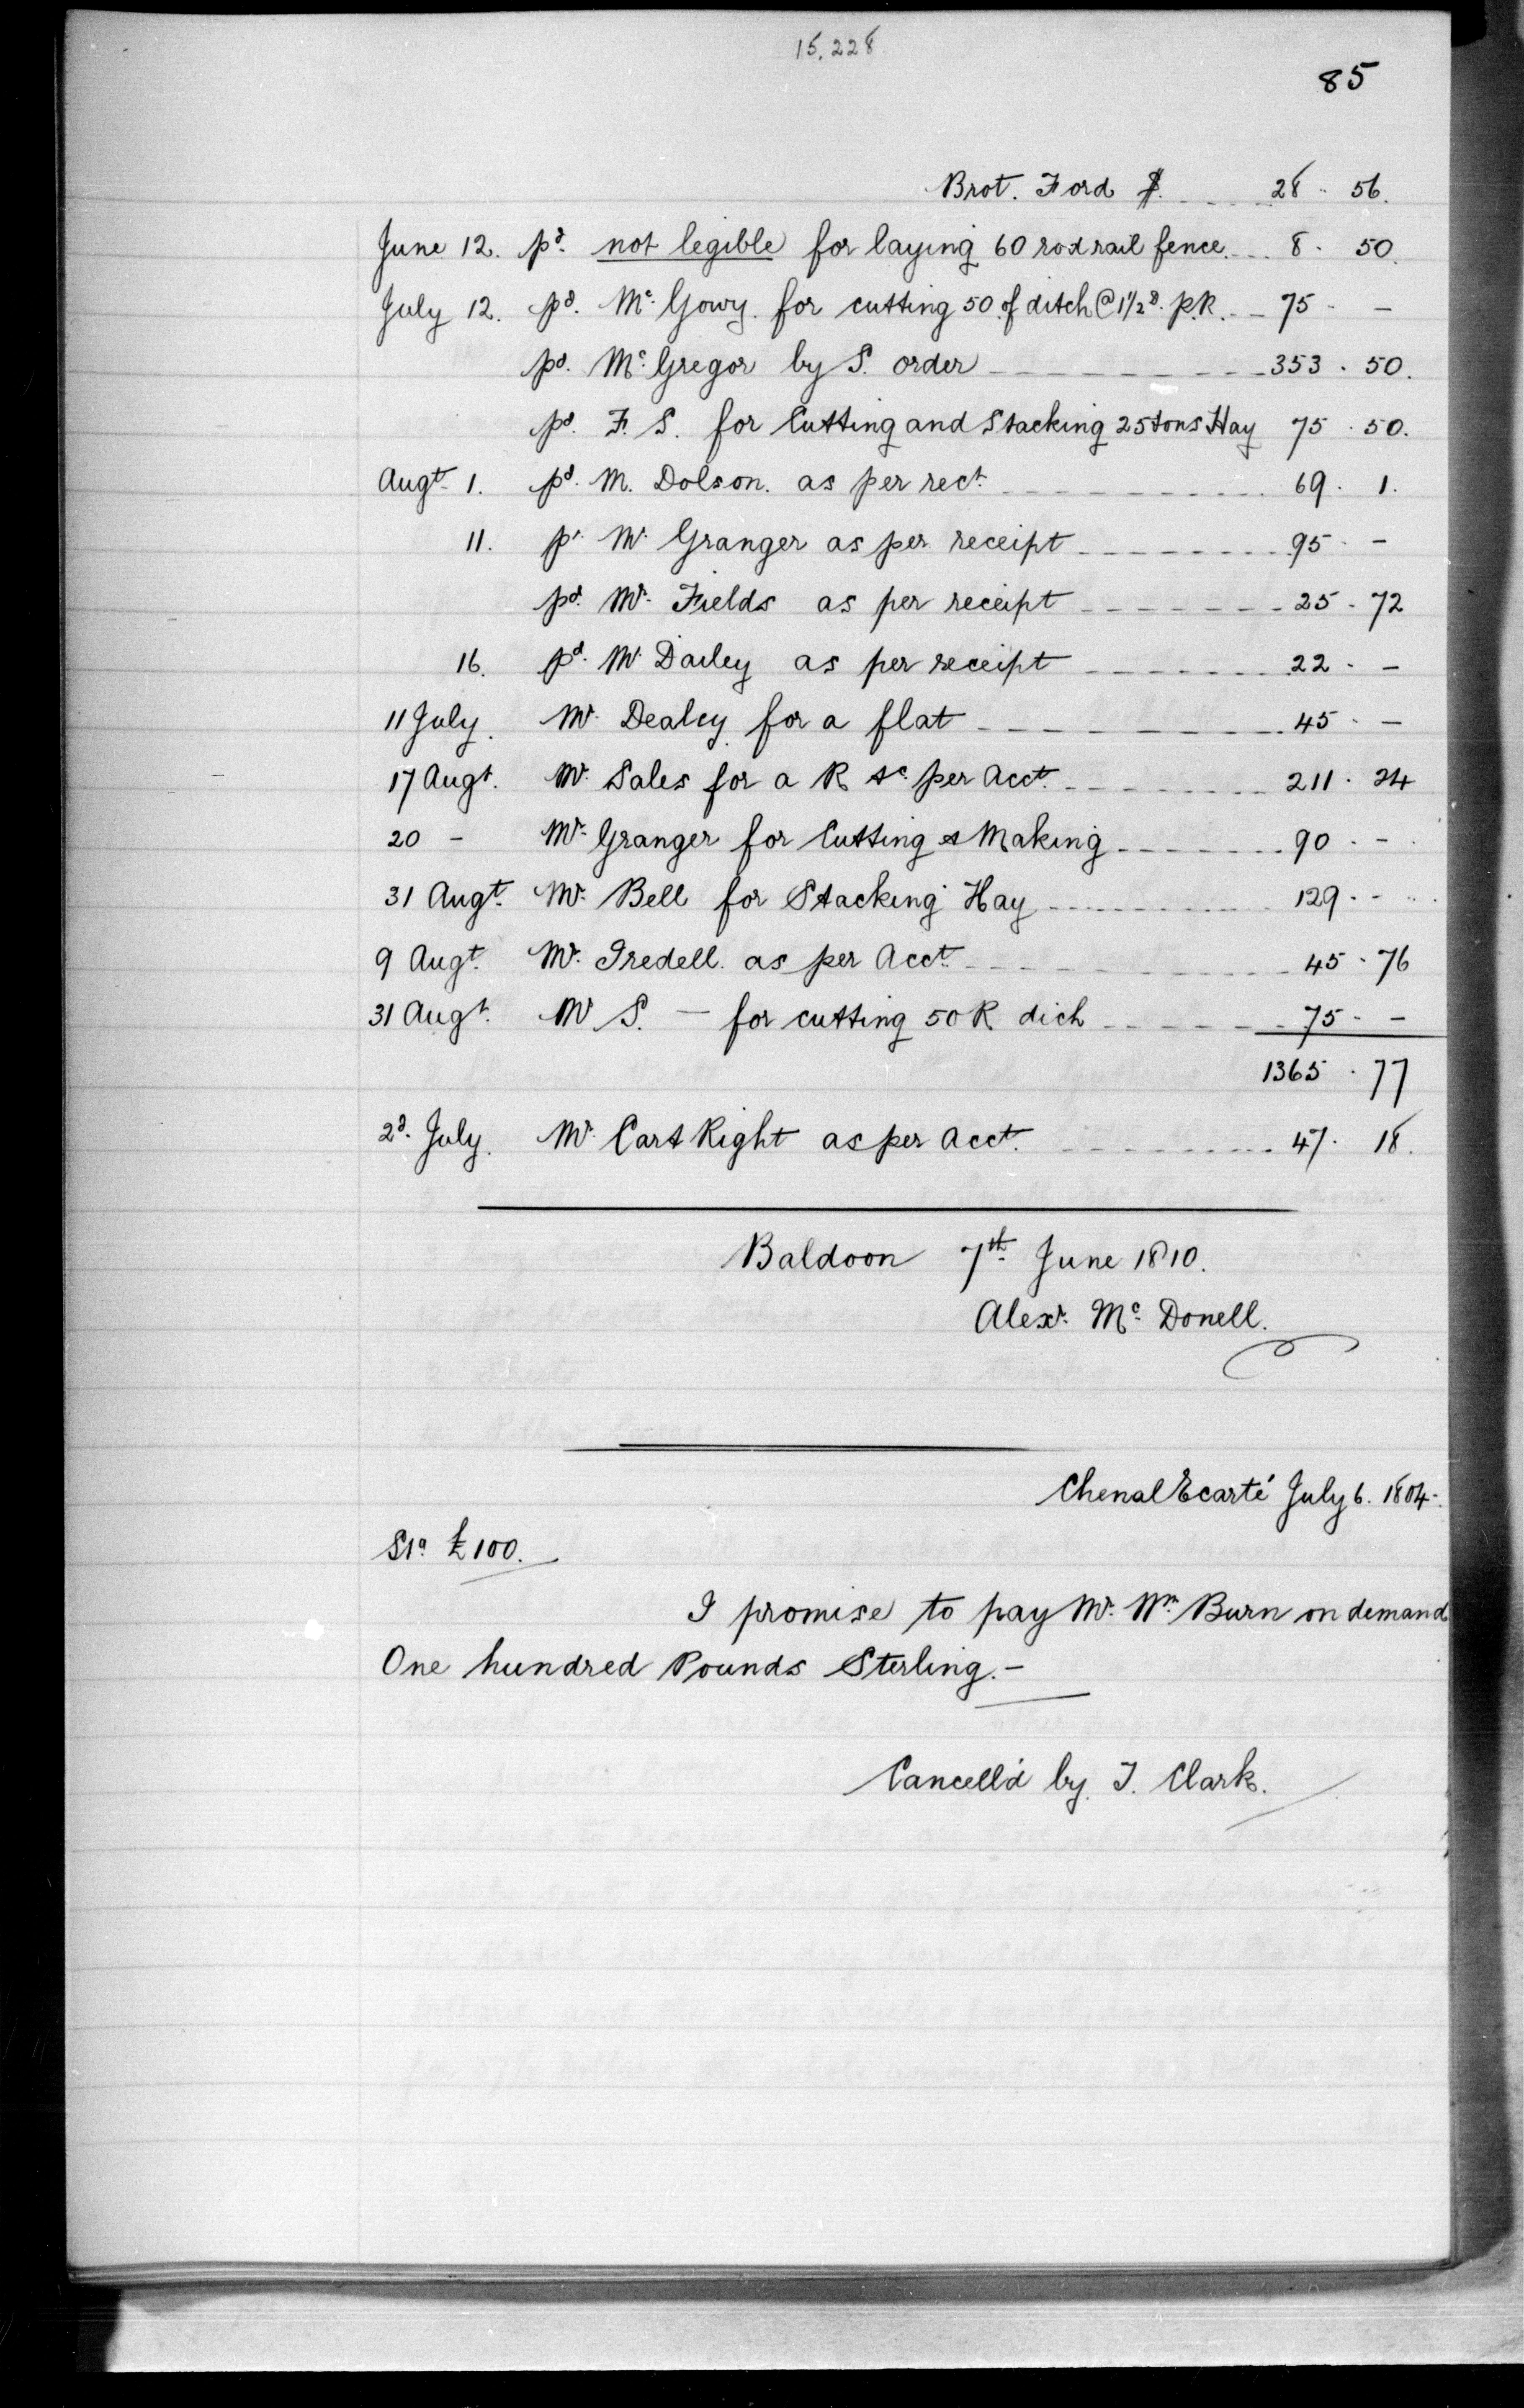 15,228
85
Brot. Ford $ 28 . 56.
June 12. pd. not legible for laying 60 rod rail fence. 8 . 50.
July 12. pd. Mc. Gowy. for cutting 50 of ditch @ 1 1/2 d. p.R. 75 . -
pd. Mc. Gregor by S. order 353 . 50.
pd. F. S. for Cutting and Stacking 25 tons Hay 75 . 50.
Augt. 1. pd. M. Dolson. as per rect. 69 . 1.
11. pr. Mr. Granger as per receipt 95 . -
pd. Mr. Fields as per receipt 25 . 72
16. pd. Mr. Dailey as per receipt 22 . -
11 July. Mr. Dealey for a flat 45 . -
17 Augt. Mr. Sales for a R &c. per Acct. 211 . 24
20 - Mr. Granger for Cutting & Making 90 . -
31 Augt. Mr. Bell for Stacking Hay 129 . -
9 Augt. Mr. Iredell. as per Acct. 45 . 76
31 Augt. Mr S. - for cutting 50 R dich 75 . -
1365 . 77
2d. July. Mr. Cart Right as per Acct. 47 . 18.
Baldoon 7th June 1810.
Alexr. Mc. Donell.
Chenal Ecarté July 6. 1804.
£100.
I promise to pay Mr. Wm. Burn on demand
One hundred Pounds Sterling. -
Cancell'd by T. Clark.